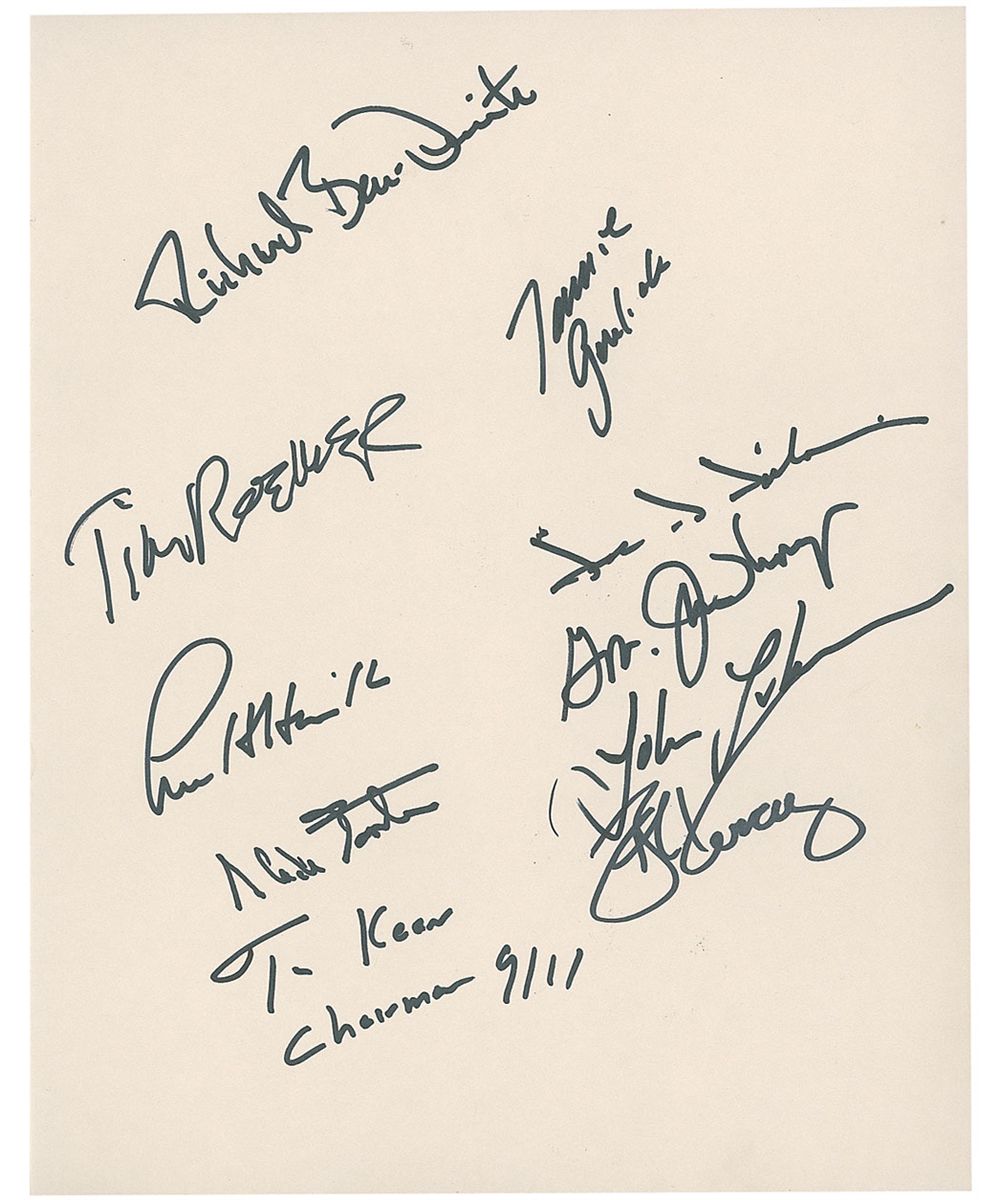 Richard Ben-Veniste
Jamie
Gorelick
Tim ROEMER
Lee H Hamilton
Slade Gorton
Tom Kean
Chairman 9/11
Gov. Jim Thompson
John Lehman
Bob Kerrey